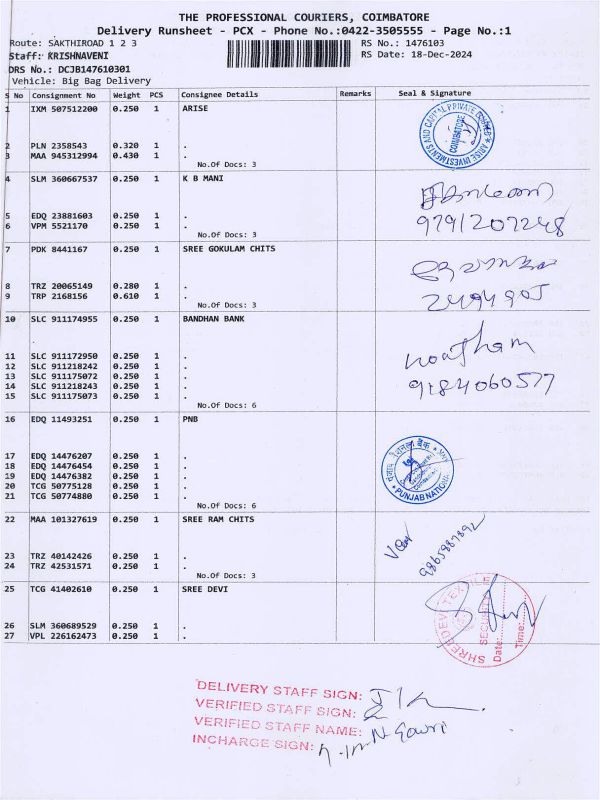 THE PROFESSIONAL COURIERS, COIMBATORE
Delivery Runsheet - PCX - Phone No.:0422-3505555 - Page No.:1
Route: SAKTHIROAD 1 2 3 RS No.: 1476103
Staff: KRISHNAVENI RS Date: 18-Dec-2024
DRS No.: DCJB147610301
Vehicle: Big Bag Delivery
S No Consignment No Weight PCS Consignee Details Remarks Seal & Signature
1 IXM 507512200 0.250 1 ARISE
ARISE INVESTMENTS AND CAPITAL PRIVATE
COIMBATORE
2 PLN 2358543 0.320 1 .
3 MAA 945312994 0.430 1 .
No.Of Docs: 3
4 SLM 360667537 0.250 1 K B MANI
5 EDQ 23881603 0.250 1 .
9791207248
6 VPM 5521170 0.250 1 .
No.Of Docs: 3
7 PDK 8441167 0.250 1 SREE GOKULAM CHITS
8 TRZ 20065149 0.280 1 .
9 TRP 2168156 0.610 1 .
2494905
No.Of Docs: 3
10 SLC 911174955 0.250 1 BANDHAN BANK
11 SLC 911172950 0.250 1 .
12 SLC 911218242 0.250 1 .
13 SLC 911175072 0.250 1 .
14 SLC 911218243 0.250 1 .
9184060577
15 SLC 911175073 0.250 1 .
No.Of Docs: 6
16 EDQ 11493251 0.250 1 PNB
17 EDQ 14476207 0.250 1 .
पंजाब नैशनल बैंक
18 EDQ 14476454 0.250 1 .
19 EDQ 14476382 0.250 1 .
20 TCG 50775128 0.250 1 .
21 TCG 50774880 0.250 1 .
PUNJAB NATIONAL
No.Of Docs: 6
22 MAA 101327619 0.250 1 SREE RAM CHITS
23 TRZ 40142426 0.250 1 .
24 TRZ 42531571 0.250 1 .
9865887892
No.Of Docs: 3
25 TCG 41402610 0.250 1 SREE DEVI
SHREEDEVI TEXTILE
SECURITY
Date:
Time:
26 SLM 360689529 0.250 1 .
27 VPL 226162473 0.250 1 .
DELIVERY STAFF SIGN:
VERIFIED STAFF SIGN:
VERIFIED STAFF NAME: N Gowri
INCHARGE SIGN: